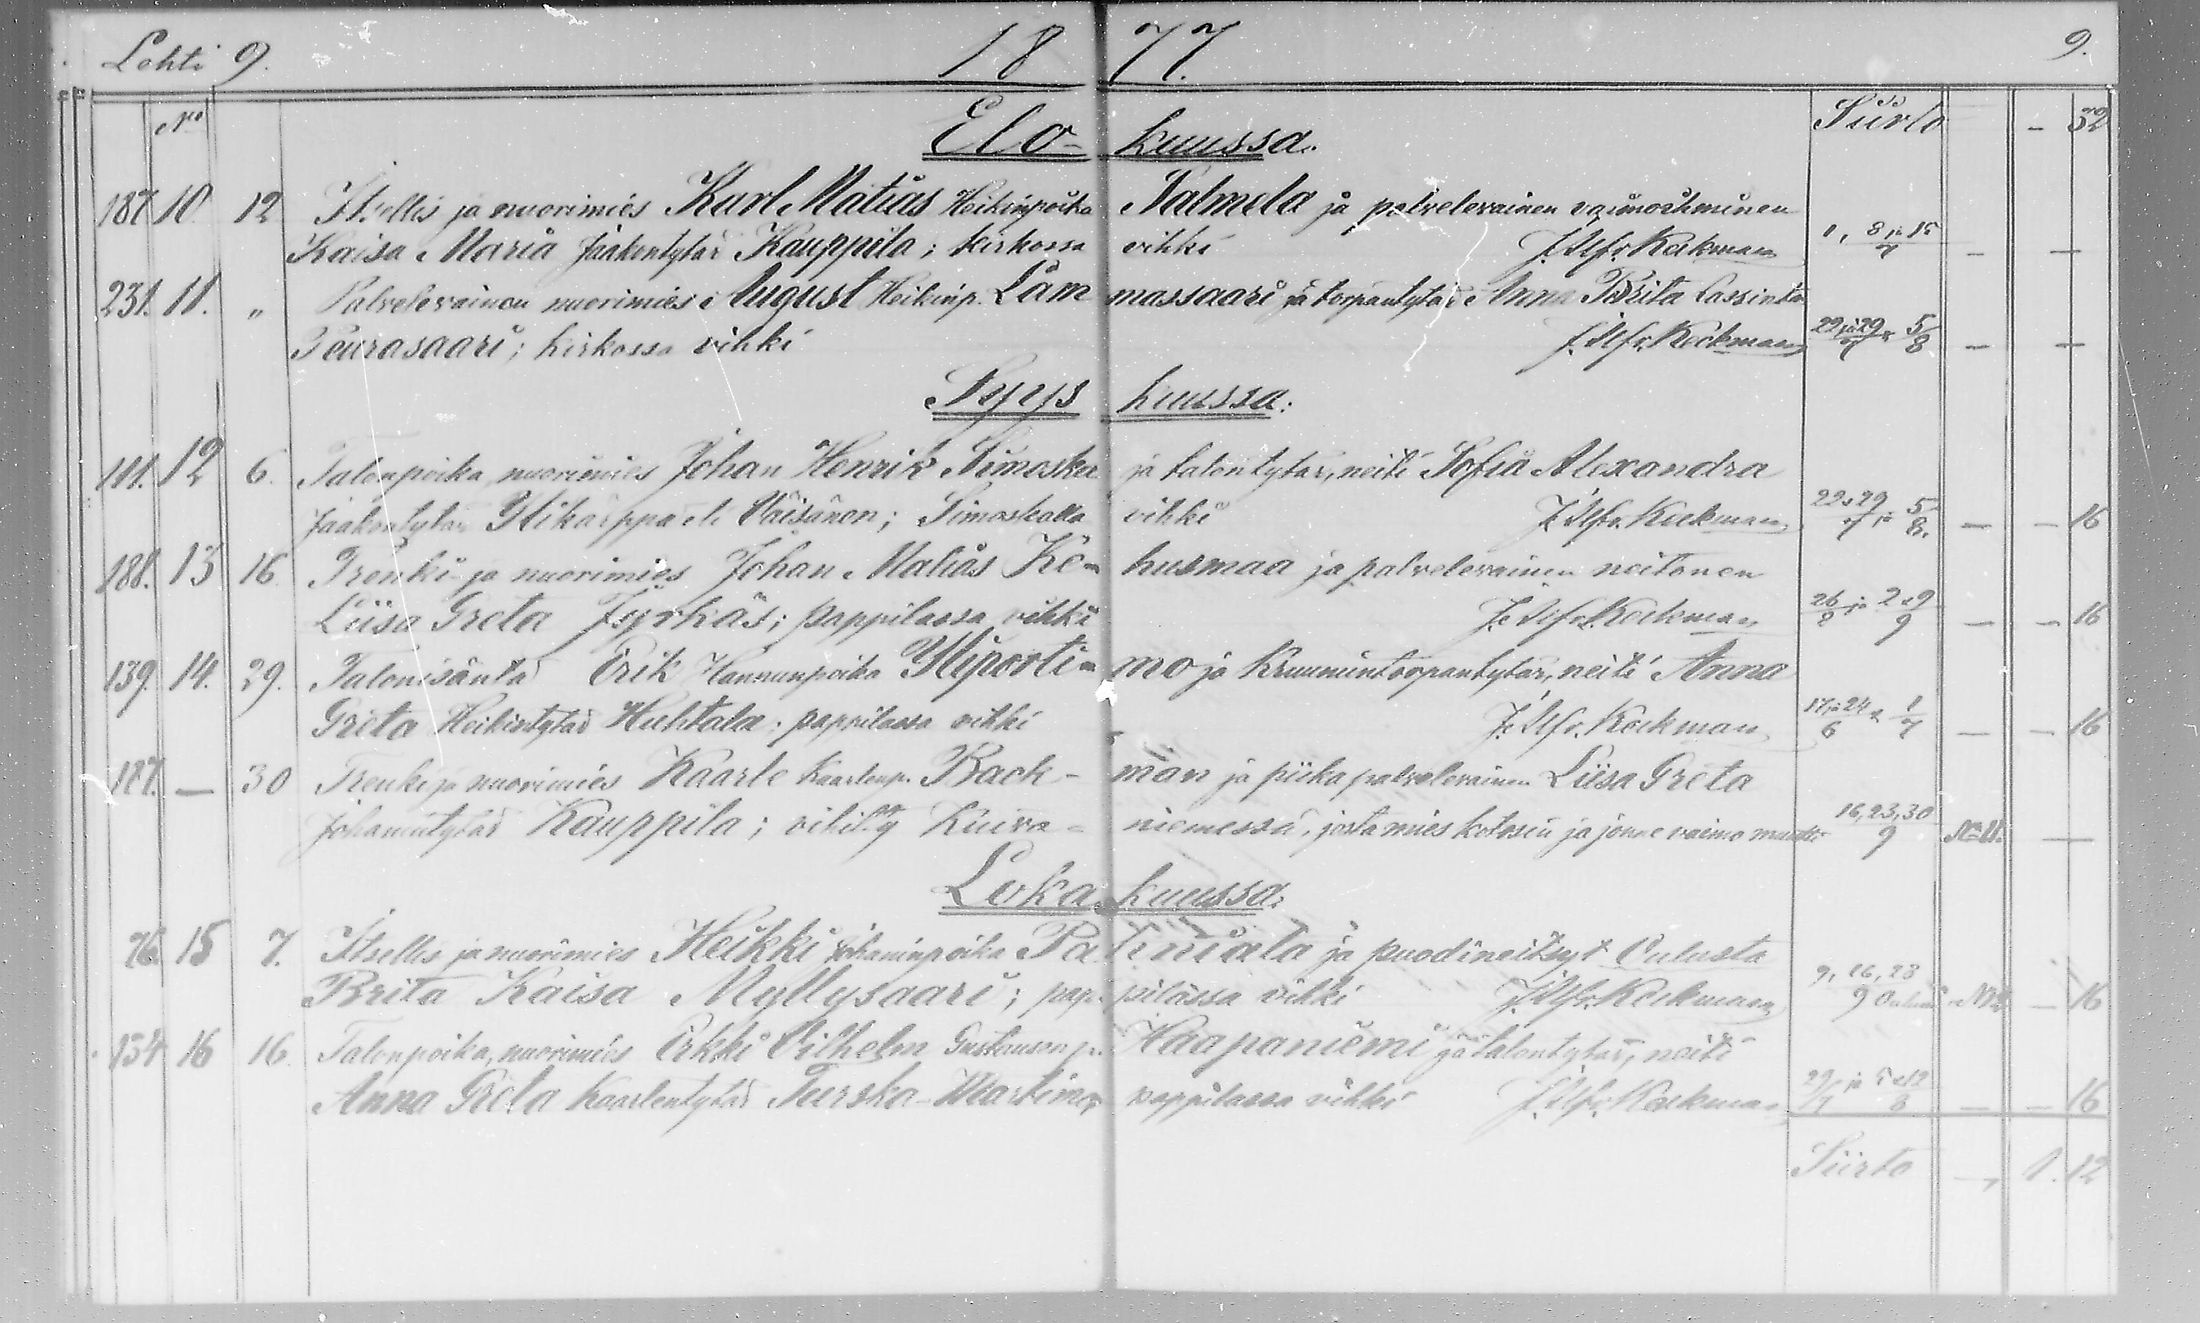 Lehti 9. 1877. 9.
No Siirto - 32
Elo-kuussa.
187. 10. 12 Itsellis ja nuorimies Karl Matias Heikinpoika Salmela ja palvelevainen vaimoihminen
Kaisa Maria Jaakontytär Kauppila; kirkossa vihki J. Alfr. Keckman 1, 8 ja 15/7 - -
231. 11. „ Palvelevainen nuorimies August Heikinp. Lammassaari ja torpantytär Anna Brita Lassint.
Peurasaari; kirkossa vihki J. Alfr. Keckman 22 ja 29/7 & 5/8 - -
Syyskuussa:
111. 12 6. Talonpoika, nuorimies Johan Henrik Simoska ja talontytär, neiti Sofia Alexandra
Jaakontytär Ylikärppä eli Väisänen; Simoskalla vihki J. Alfr. Keckman 22 & 29/7 ja 5/8. - - 16
188. 13 16. Trenki ja nuorimies Johan Matias Kehusmaa ja palvelevainen neitonen
Liisa Greta Jyrkäs; pappilassa vihki J. Alfr. Keckman 26/8 ja 2 & 9/9 - - 16
139. 14. 29. Talonisäntä Erik Hannunpoika Yliportimo ja Kruunintorpantytär, neiti Anna
Greta Heikintytär Huhtala; pappilassa vihki J. Alfr. Keckman 17 ja 24/6 & 1/7 - - 16
187. - 30 Trenki ja nuorimies Kaarle Kaarlenp. Backman ja piika palvelevainen Liisa Greta
Johanintytär Kauppila; Kuivaniemessä, josta mies kotosin ja jonne vaimo muutti 16, 23, 30/9 -
Lokakuussa:
76. 15 7. Itsellis ja nuorimies Heikki Johaninpoika Paliniala ja puodineitsyt Oulusta
Brita Kaisa Myllysaari; pappilassa vihki J. Alfr. Keckman 9, 16, 23/9 - 16
134 16 16. Talonpoika, nuorimies Erkki Vilhelm Haapaniemi ja talontytär, neiti
Anna Greta Kaarlentytär Teerska-Martimo, pappilassa vihki J. Alfr. Keckman 29/7 ja 5 & 12/8 - - 16
Siirto - 1. 12